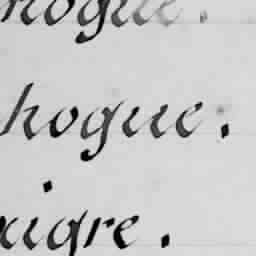 hogue.
hogue.
aigre.